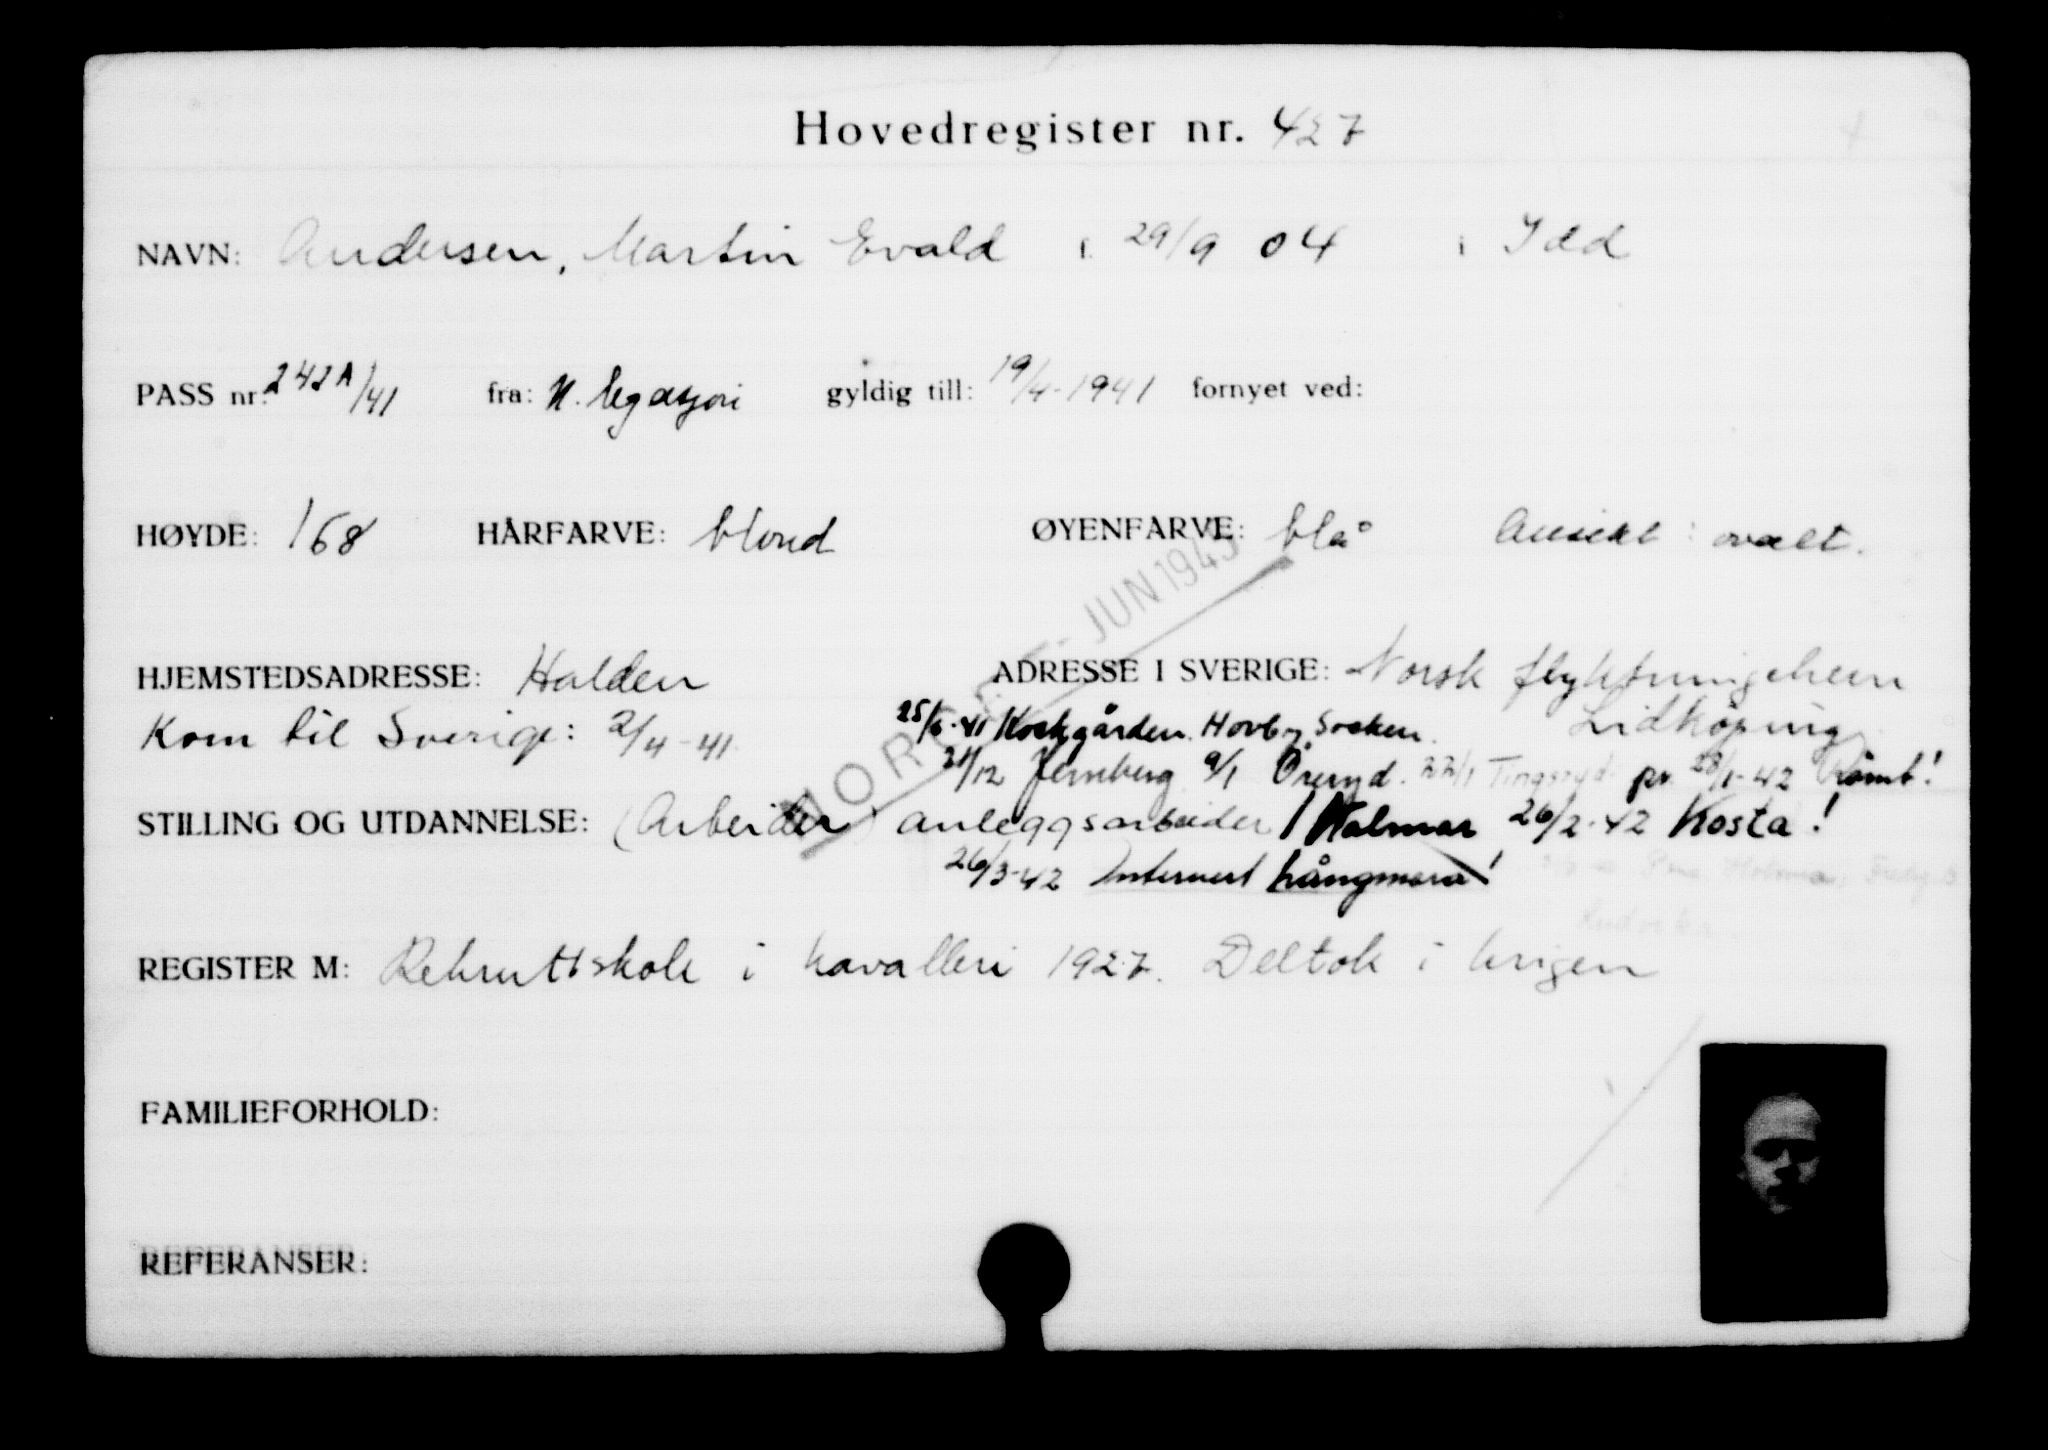 Hovedregister nr. 427
NAVN: Andersen, Martin Evald f. 29/9 04 i Idd
PASS nr. 242A/41 fra: N. legasjon gyldig till: 19/4-1941 fornyet ved:
HØYDE: 168 HÅRFARVE: blond ØYENFARVE: blå Ansikt: ovalt.
JUN 1945
HJEMSTEDSADRESSE: Halden ADRESSE I SVERIGE: Norsk flyktningehem
Lidköping
Kom til Sverige: 2/4-41 25/6-41 Hovby Socken.
NORGE
31/12 Jernberg 9/1 Öreryd. 22/1 Tingsryd pr. 28/1-42 Römt!
STILLING OG UTDANNELSE: (Arbeider) anleggsarbeider / Kalmar 26/2-42 Kosta!
26/3-42 Internert Långmora!
REGISTER M: Rekruttskole i kavalleri 1927. Deltok i krigen
FAMILIEFORHOLD:
REFERANSER: